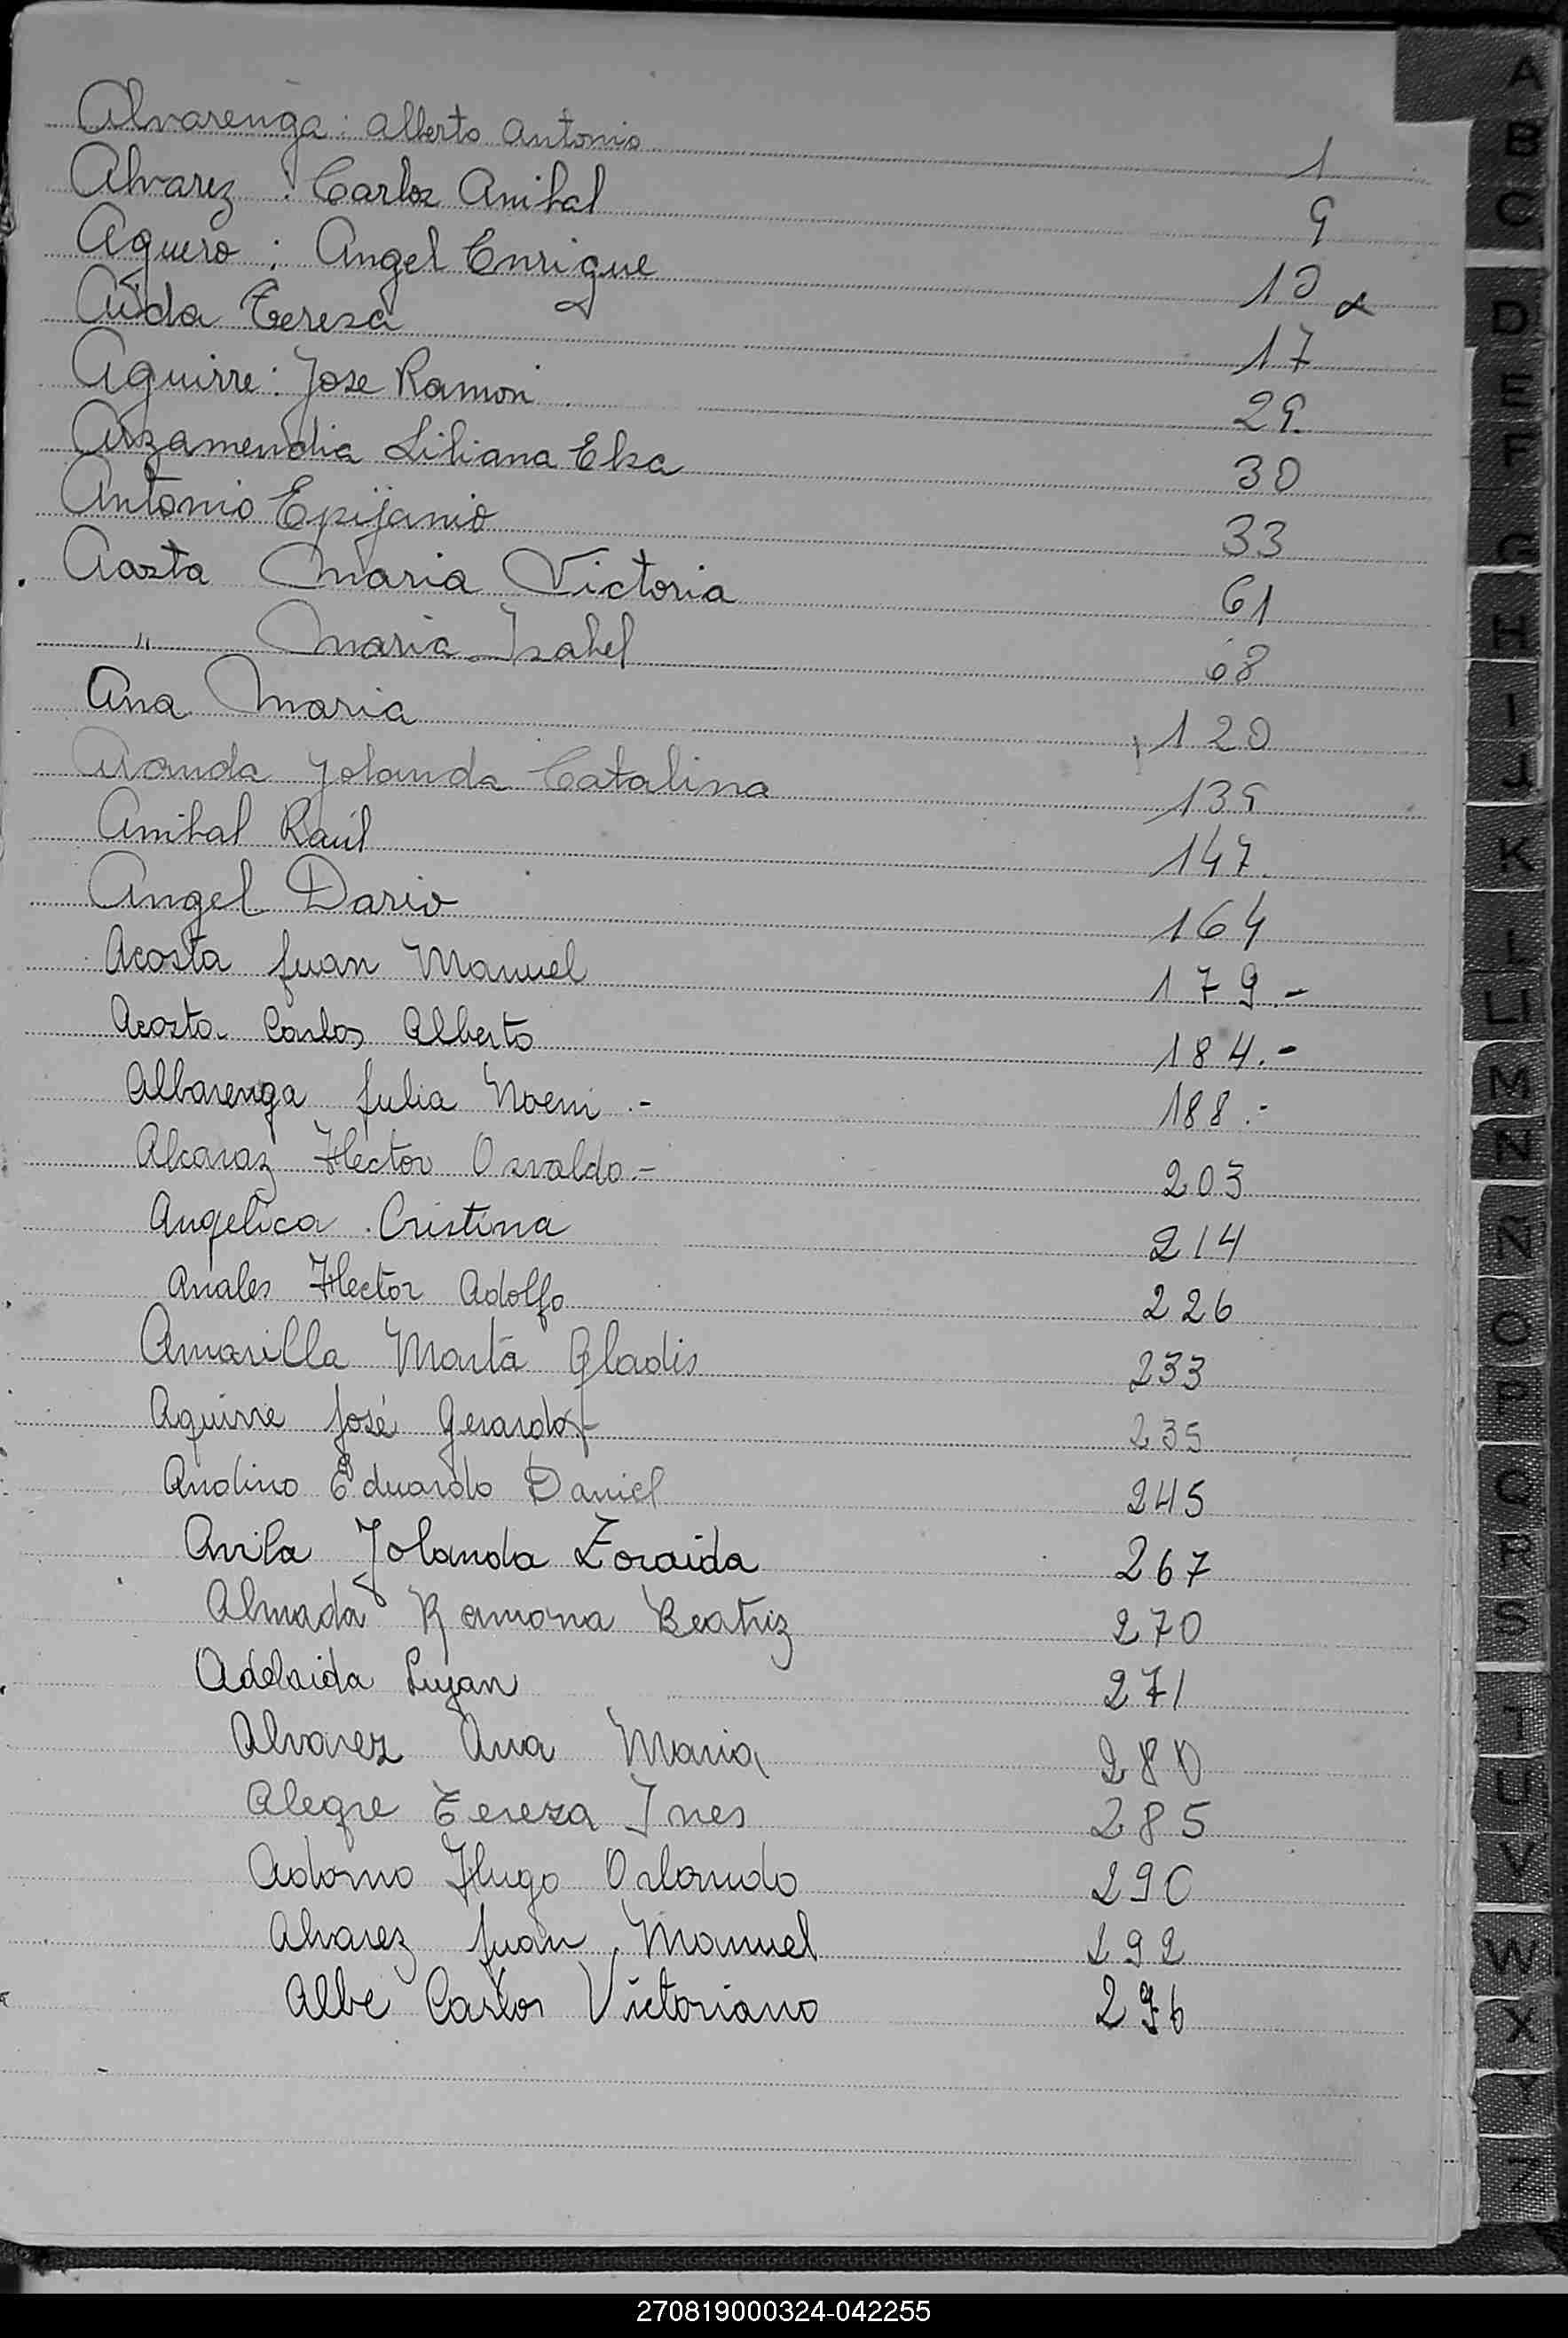 Alvarenga: Alberto Antonio 1
Alvarez : Carlos Anibal 9
Aguero : Angel Enrique 10
Aida Teresa 17
Aguirre: Jose Ramon 29
Arzamendia Liliana Elsa 30
Antonio Epifanio 33
Acosta Maria Victoria 61
" Maria Isabel 68
Ana Maria 120
Yolanda Catalina 139
Anibal Raúl 147
Angel Dario 164
Acosta Juan Manuel 179.-
Acosta Carlos Alberto 184.-
Albarenga Julia Noemi .- 188.-
Alcaraz Hector Osvaldo.- 203
Angelica Cristina 214
Hector Adolfo 226
Amarilla Marta Gladis 233
Aguirre José Gerardo.- 235
Andino Eduardo Daniel 245
Avila Yolanda Zoraida 267
Almada Ramona Beatriz 270
Adelaida Lujan 271
Alvarez Ana Maria 280
Alegre Tereza Ines 285
Adorno Hugo Orlando 290
Alvarez Juan Manuel 292
Albe Carlos Victoriano 296
A
B
C
D
E
F
G
H
I
J
K
L
LL
M
N
Ñ
O
P
Q
R
S
T
U
V
W
X
Y
Z
270819000324-042255